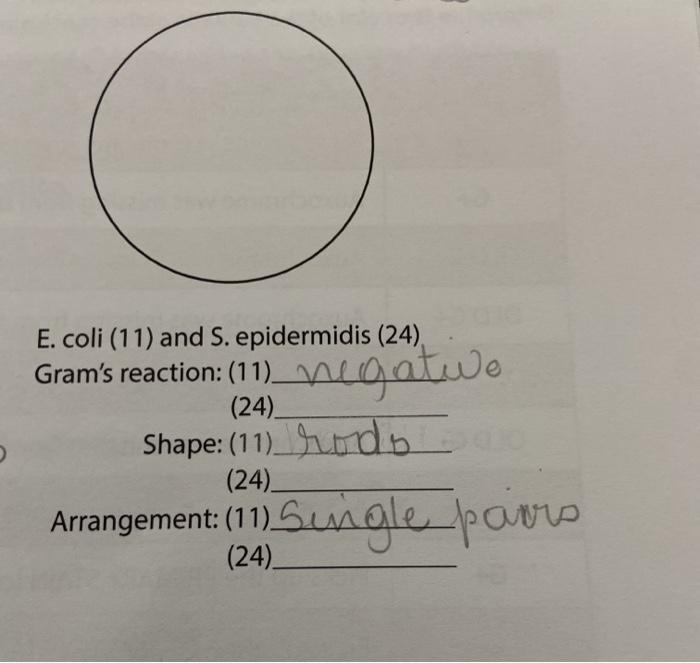 E. coli (11) and S. epidermidis (24)
Gram's reaction: (11) negative
(24)
Shape: (11) rods
(24)
Arrangement: (11) Single pairs
(24)